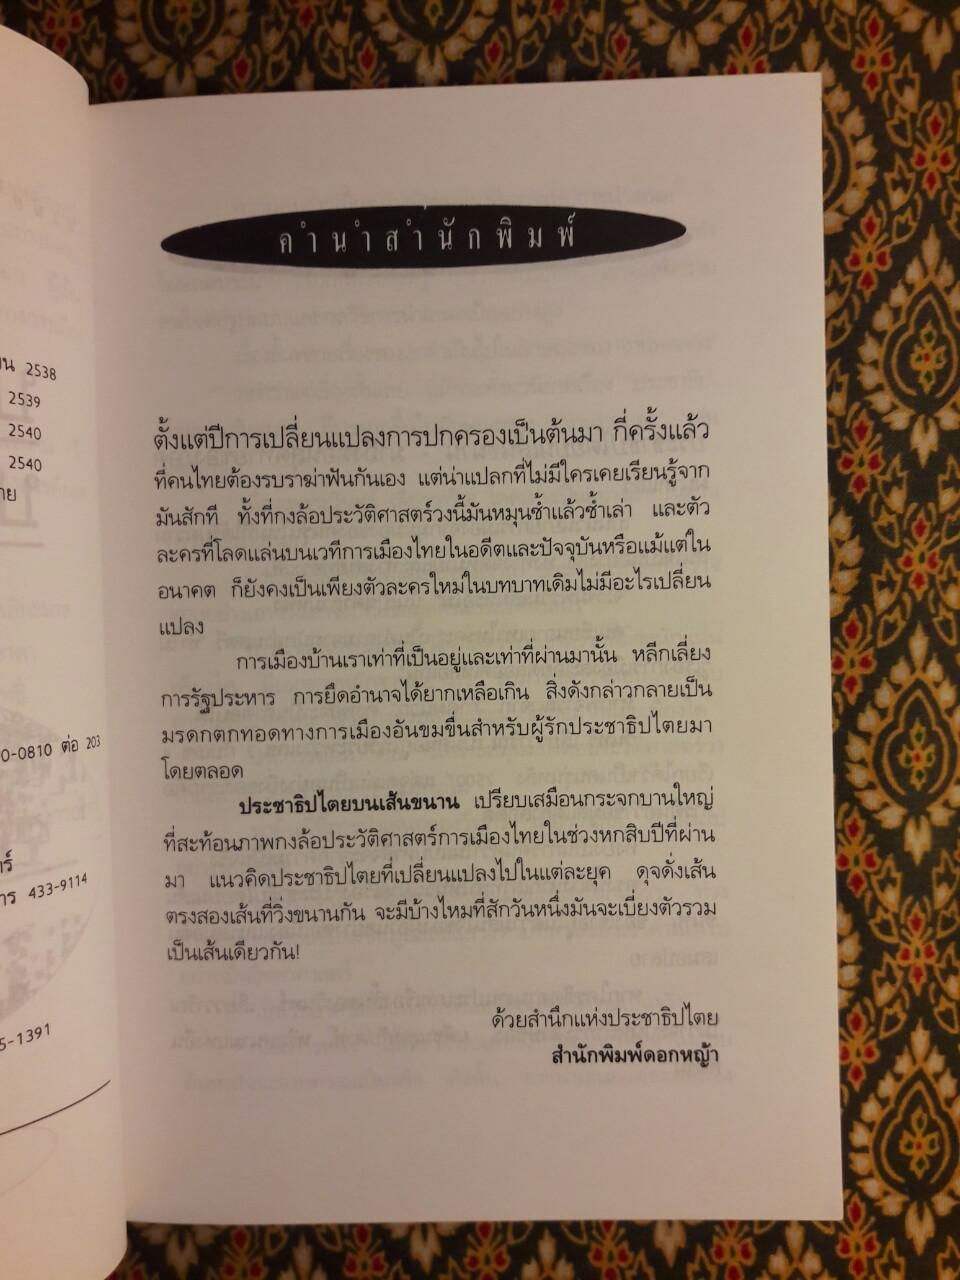 น 2538
2539
2540
2540
าย
0-0810 ต่อ 203
ร์
าร 433-9114
5-1391
คำนำสำนักพิมพ์
ตั้งแต่ปีการเปลี่ยนแปลงการปกครองเป็นต้นมา กี่ครั้งแล้ว
ที่คนไทยต้องรบราฆ่าฟันกันเอง แต่น่าแปลกที่ไม่มีใครเคยเรียนรู้จาก
มันสักที ทั้งที่กงล้อประวัติศาสตร์วงนี้มันหมุนซ้ำแล้วซ้ำเล่า และตัว
ละครที่โลดแล่นบนเวทีการเมืองไทยในอดีตและปัจจุบันหรือแม้แต่ใน
อนาคต ก็ยังคงเป็นเพียงตัวละครใหม่ในบทบาทเดิมไม่มีอะไรเปลี่ยน
แปลง
การเมืองบ้านเราเท่าที่เป็นอยู่และเท่าที่ผ่านมานั้น หลีกเลี่ยง
การรัฐประหาร การยึดอำนาจได้ยากเหลือเกิน สิ่งดังกล่าวกลายเป็น
มรดกตกทอดทางการเมืองอันขมขื่นสำหรับผู้รักประชาธิปไตยมา
โดยตลอด
ประชาธิปไตยบนเส้นขนาน เปรียบเสมือนกระจกบานใหญ่
ที่สะท้อนภาพกงล้อประวัติศาสตร์การเมืองไทยในช่วงหกสิบปีที่ผ่าน
มา แนวคิดประชาธิปไตยที่เปลี่ยนแปลงไปในแต่ละยุค ดุจดั่งเส้น
ตรงสองเส้นที่วิ่งขนานกัน จะมีบ้างไหมที่สักวันหนึ่งมันจะเบี่ยงตัวรวม
เป็นเส้นเดียวกัน!
ด้วยสำนึกแห่งประชาธิปไตย
สำนักพิมพ์ดอกหญ้า